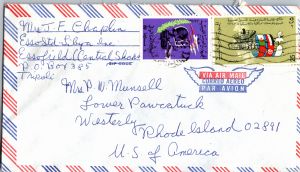 Mrs J. F. Chaplin
Esso Std. Libya Inc.
Essofield Central Shops
P.O. Box 385
Tripoli
ZIP CODE
VIA AIR MAIL
CORREO AEREO
PAR AVION
Mrs P. W. Munsell
Lower Pawcatuck
Westerly
Rhode Island 02891
U.S. of America